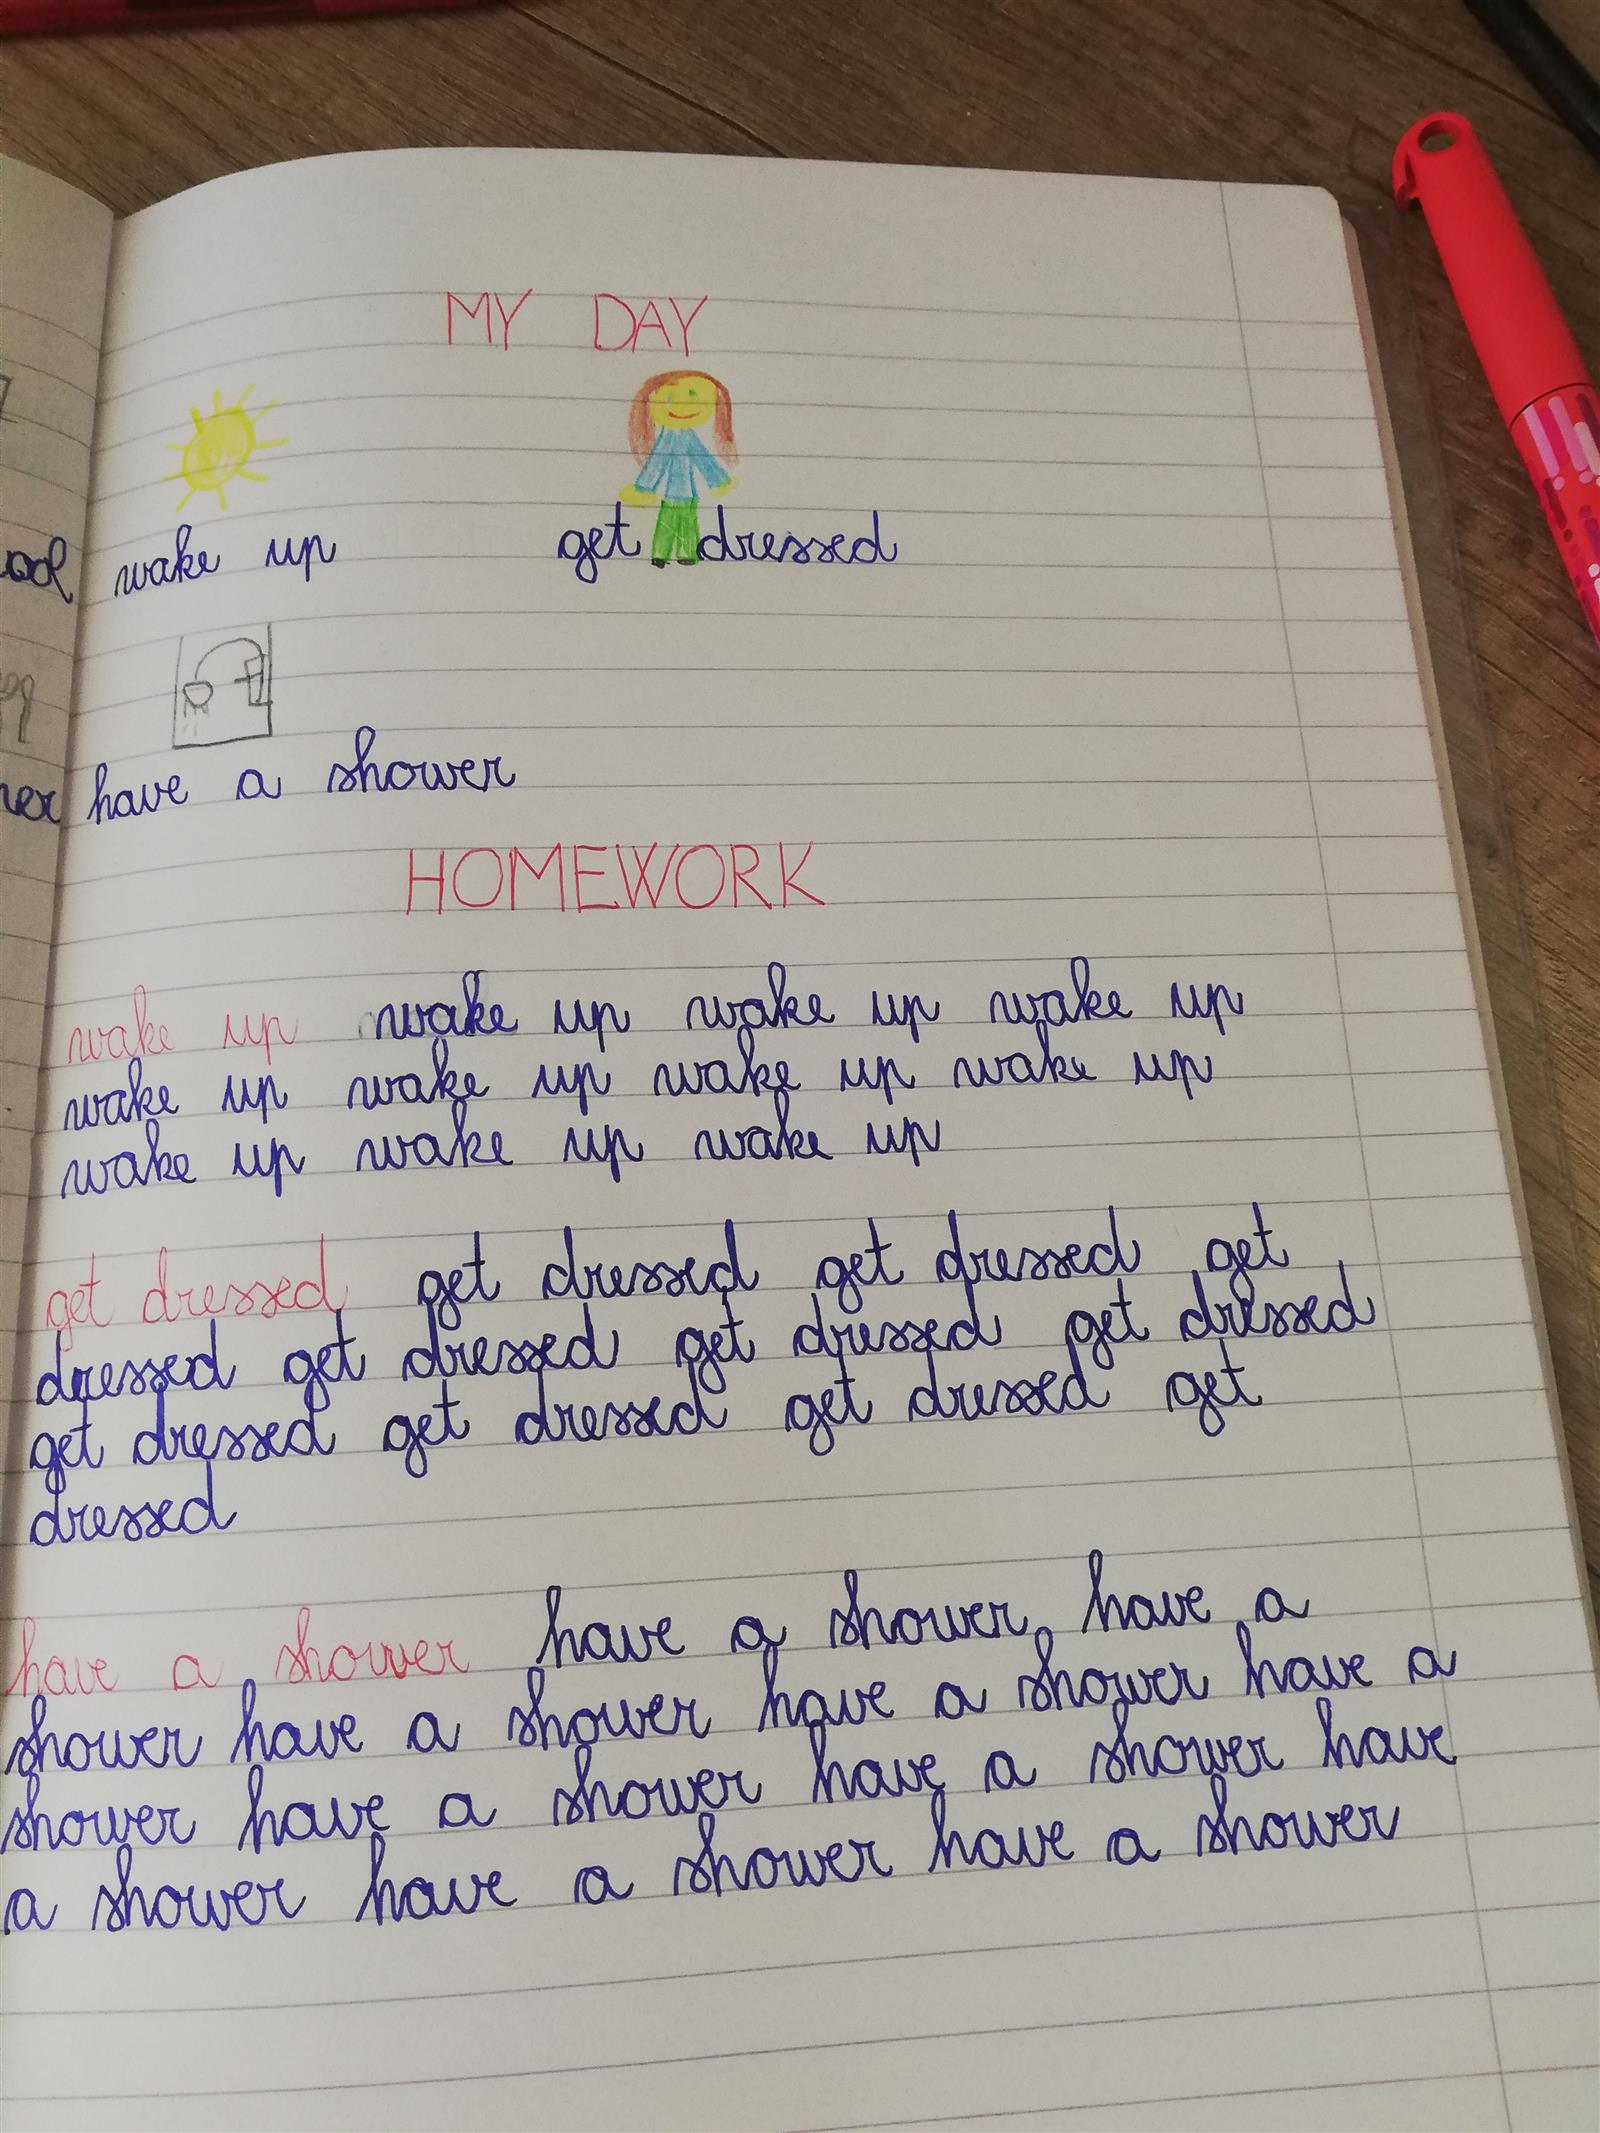 MY DAY
wake up get dressed
have a shower
HOMEWORK
wake up wake up wake up wake up
wake up wake up wake up wake up
wake up wake up wake up
get dressed get dressed get dressed get
dressed get dressed get dressed get dressed
get dressed get dressed get dressed get
dressed
have a shower have a shower have a
shower have a shower have a shower have a
shower have a shower have a shower have
a shower have a shower have a shower